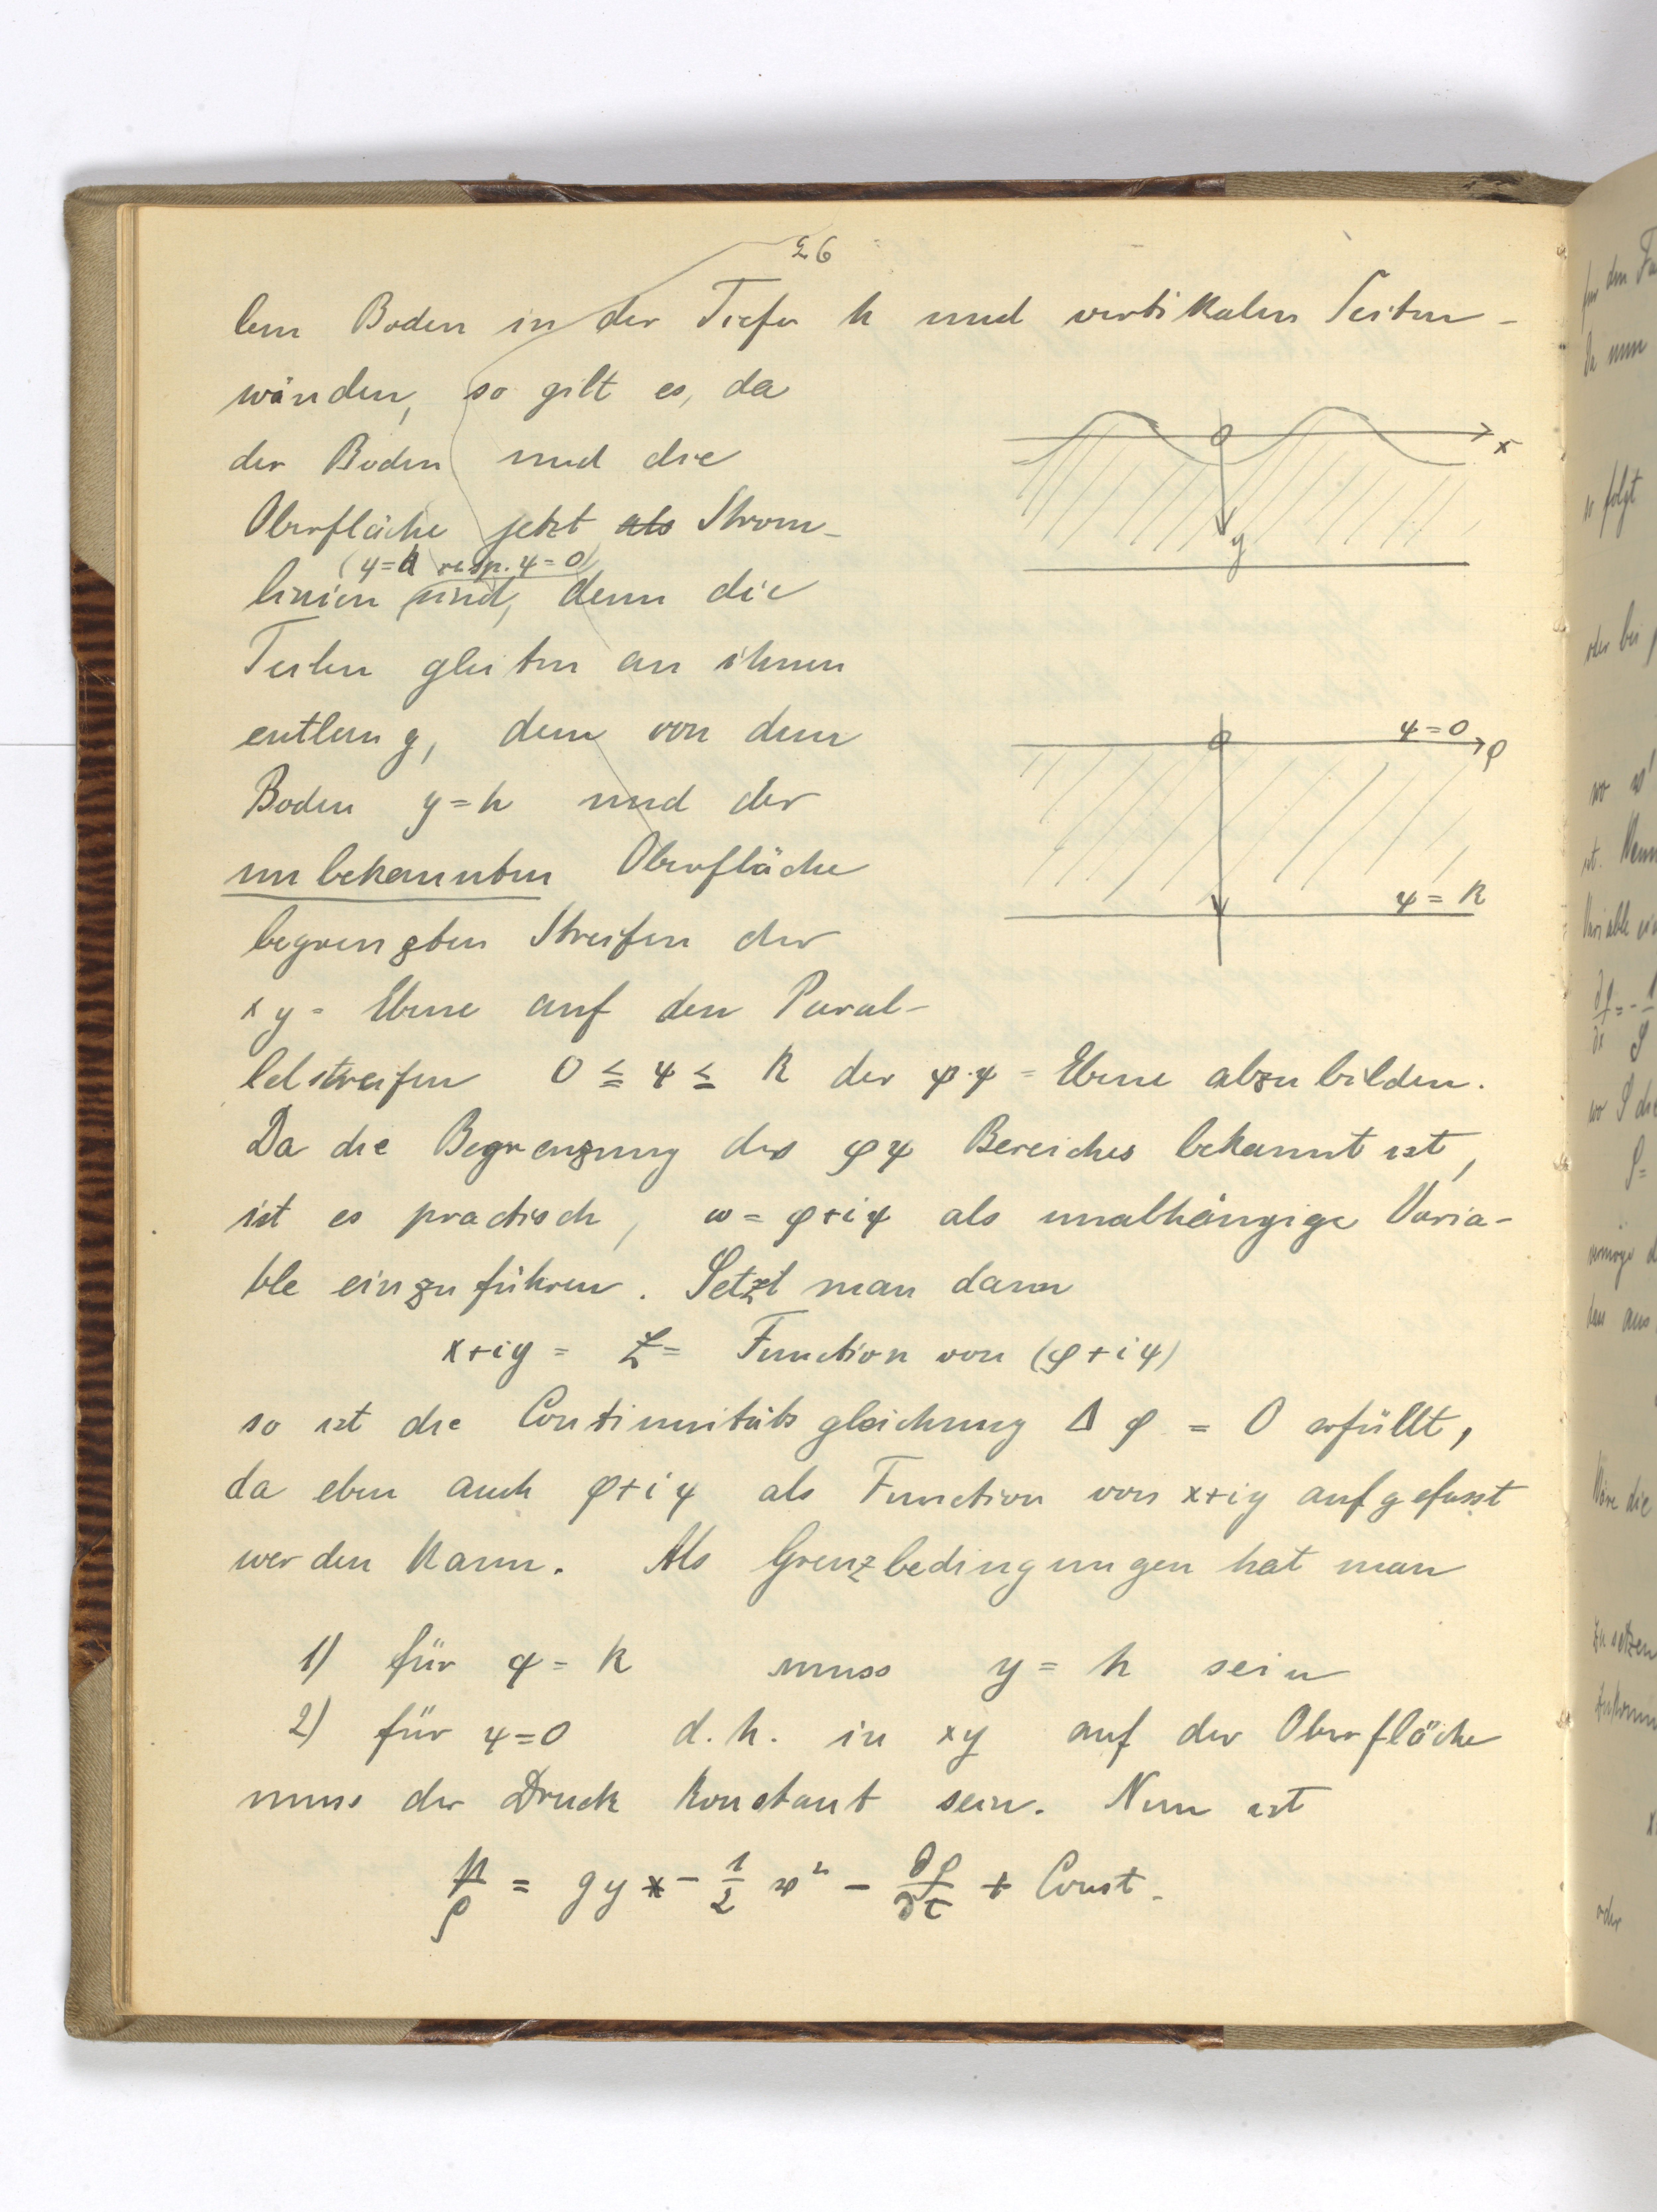 26
lem Boden in der Tiefe h und vertikalen Seiten-
wänden, so gilt es, da
der Boden und die
Oberfläche jetzt als Strom-
(ψ=k resp. ψ=0)
linien sind, denn die
Teilen gleiten an ihnen
entlang, den von dem
Boden y=h und der
unbekannten Oberfläche
begrenzten Streifen der
xy-Ebene auf den Paral-
lelstreifen 0 ≦ ψ ≦ k der φψ-Ebene abzubilden.
Da die Begrenzung des φψ Bereiches bekannt ist,
ist es practisch, w = φ+iψ als unabhängige Varia-
ble einzuführen. Setzt man dann
x+iy = z = Function von (φ+iψ)
so ist die Continuitätsgleichung Δφ = 0 erfüllt,
da eben auch φ+iψ als Function von x+iy aufgefasst
werden kann. Als Grenzbedingungen hat man
1) für ψ = k muss y = h sein
2) für ψ=0 d.h. in xy auf der Oberfläche
muss der Druck konstant sein. Nun ist
p/ρ = gy - 1/2 w² - ∂φ/∂t + Const.
x
y
ψ=0
φ
ψ=k
für den
Da nun
so folgt
oder bei
wo w'
ist.
Variable
wo
vermöge
den aus
Wäre die
zu setzen
oder